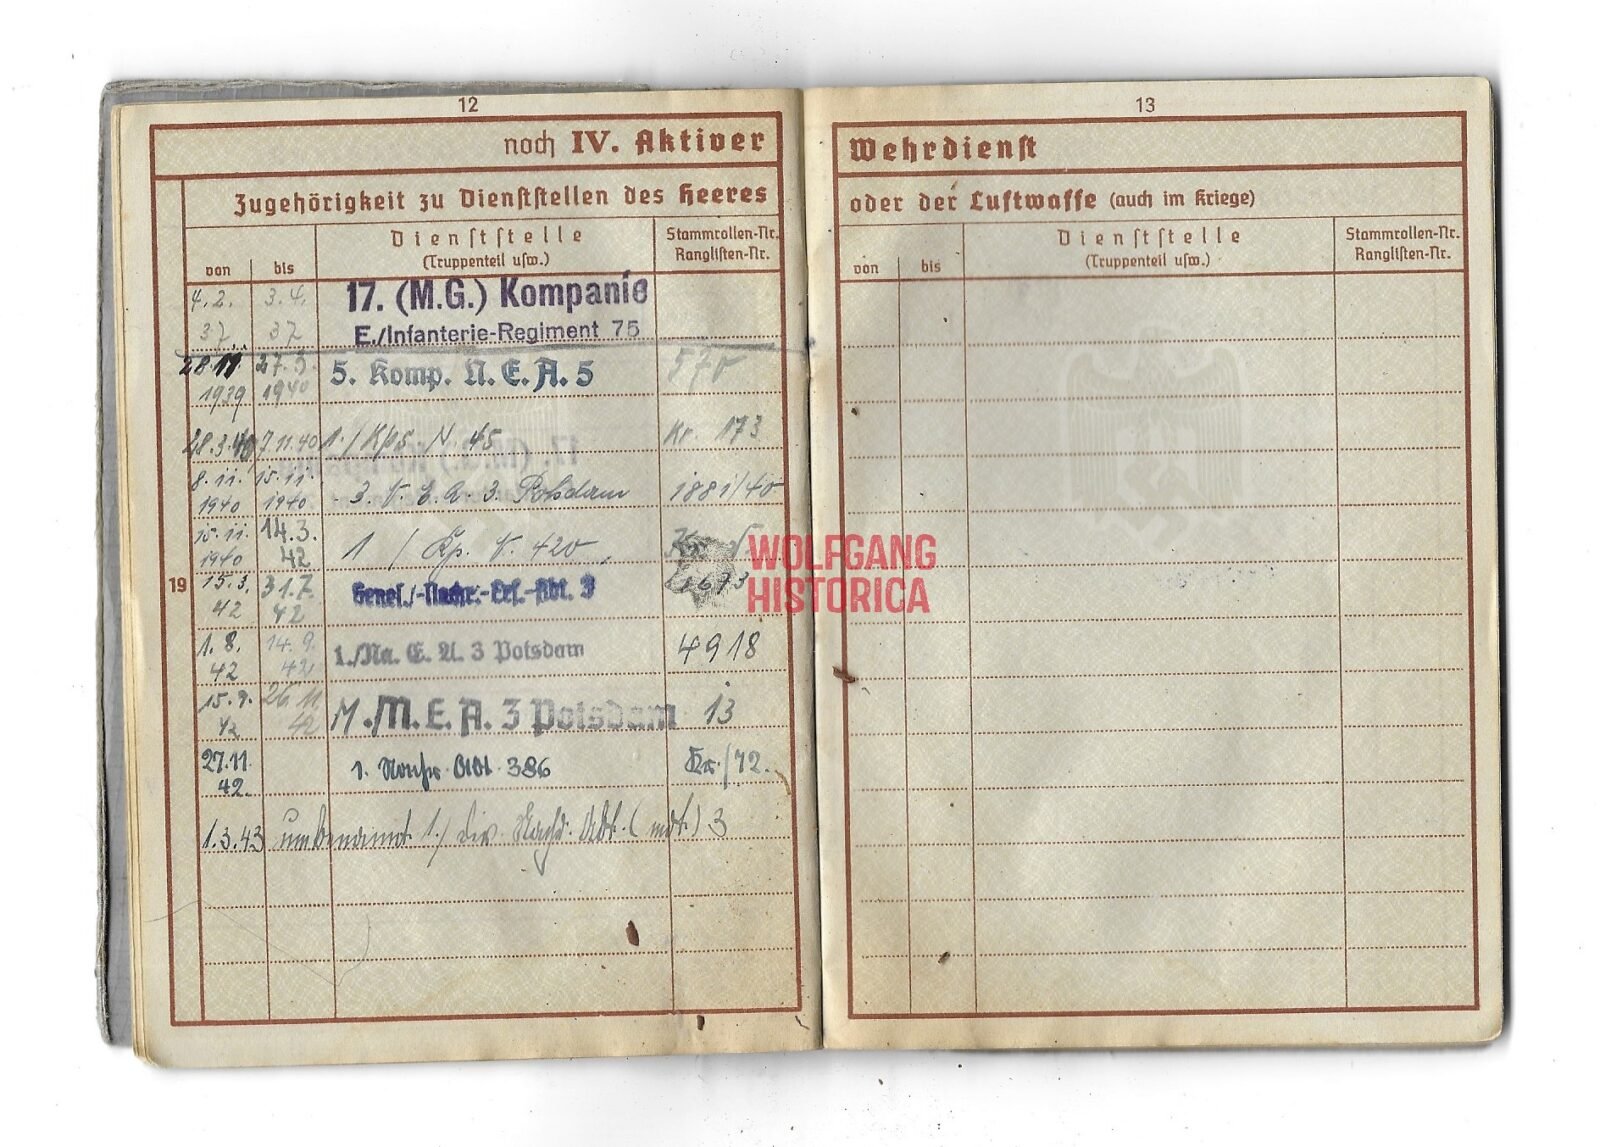 12
noch IV. Aktiver
Zugehörigkeit zu Dienststellen des Heeres
von
bis
Dienststelle
(Truppenteil usw.)
Stammrollen-Nr.
Ranglisten-Nr.
4.2. 3.4. 17. (M.G.) Kompanie
37 37 E./Infanterie-Regiment 75
28.11. 27.3. 5. Komp. N. E. A. 5 570
1939 1940
28.3.40 7.11.40 1./ Kps. N 45 Kr. 173
8.11. 15.11. 3. N. E. A. 3. Potsdam 1881/40
1940 1940
15.11. 14.3. 1 / Kp. N. 420
1940 42
19
15.3. 31.7. Genes.-Nachr.-Ers.-Abt. 3 1673
42 42
1.8. 14.9. 1./Na. E. A. 3 Potsdam 4918
42 42
15.9. 26.11 M.N.E.A. 3 Potsdam 13
42 42
27.11. 1. Nachr. Abt. 386 Kr./72.
42.
1.3.43 umbenannt 1./ Div. Nachr. Abt. (mot.) 3
13
Wehrdienst
oder der Luftwaffe (auch im Kriege)
von
bis
Dienststelle
(Truppenteil usw.)
Stammrollen-Nr.
Ranglisten-Nr.
WOLFGANG
HISTORICA